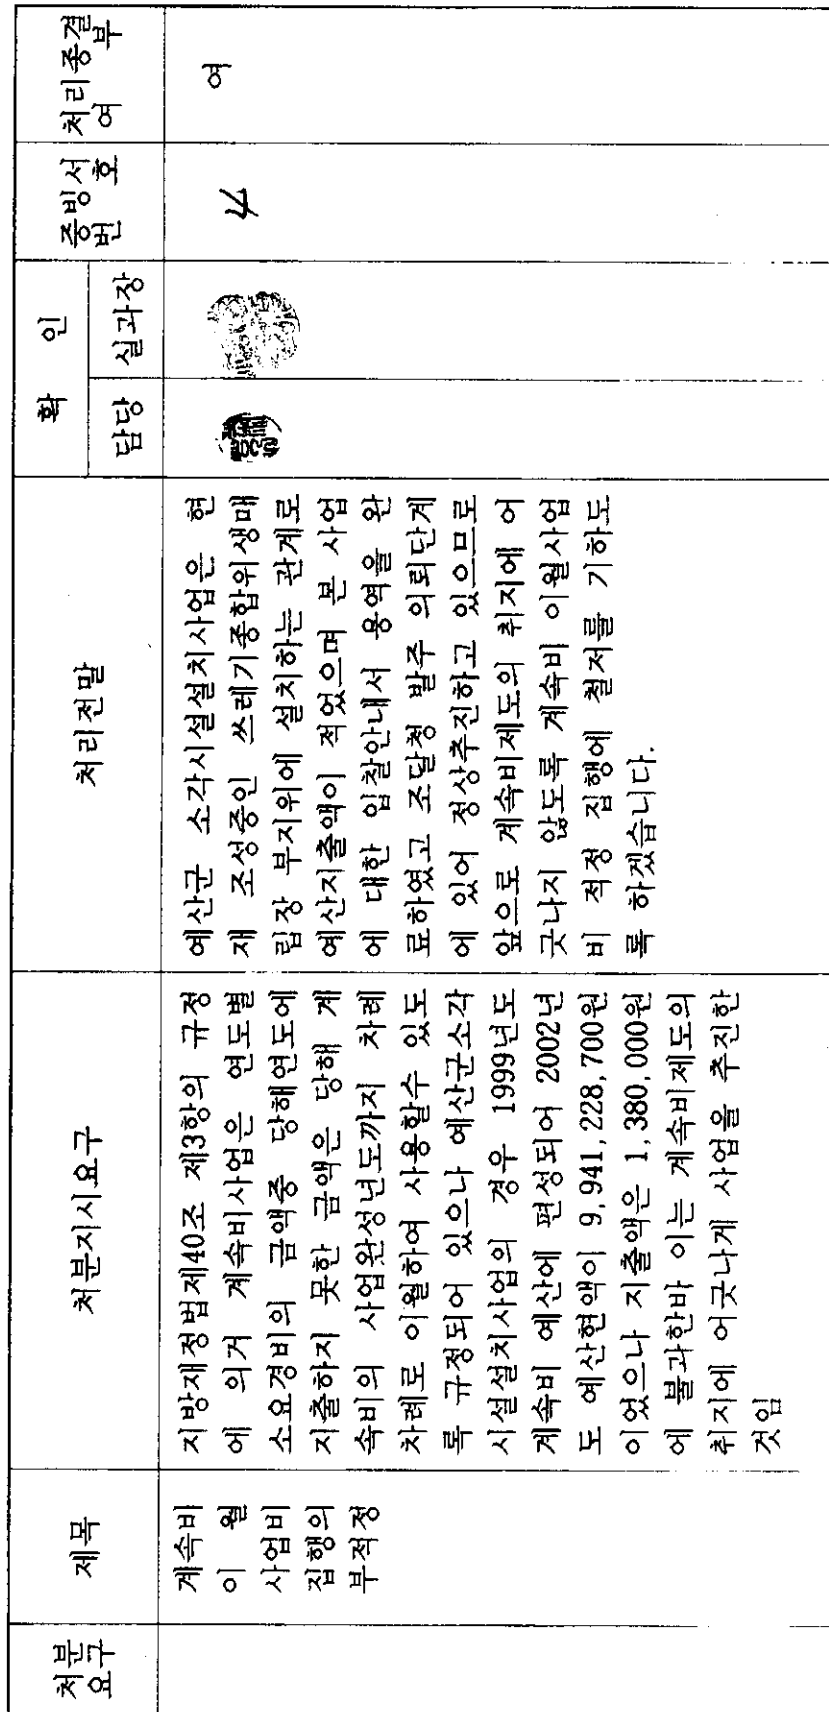 처분
요구
제목
처분지시요구
처리전말
확 인
담당
실과장
증빙서
번 호
처리종결
여 부
계속비
이 월
사업비
집행의
부적정
지방재정법제40조 제3항의 규정
에 의거 계속비사업은 연도별
소요경비의 금액중 당해연도에
지출하지 못한 금액은 당해 계
속비의 사업완성년도까지 차례
차례로 이월하여 사용할수 있도
록 규정되어 있으나 예산군소각
시설설치사업의 경우 1999년도
계속비 예산에 편성되어 2002년
도 예산현액이 9,941,228,700원
이었으나 지출액은 1,380,000원
에 불과한바 이는 계속비제도의
취지에 어긋나게 사업을 추진한
것임
예산군 소각시설설치사업은 현
재 조성중인 쓰레기종합위생매
립장 부지위에 설치하는 관계로
예산지출액이 적었으며 본 사업
에 대한 입찰안내서 용역을 완
료하였고 조달청 발주 의뢰단계
에 있어 정상추진하고 있으므로
앞으로 계속비제도의 취지에 어
긋나지 않도록 계속비 이월사업
비 적정 집행에 철저를 기하도
록 하겠습니다.
4
여